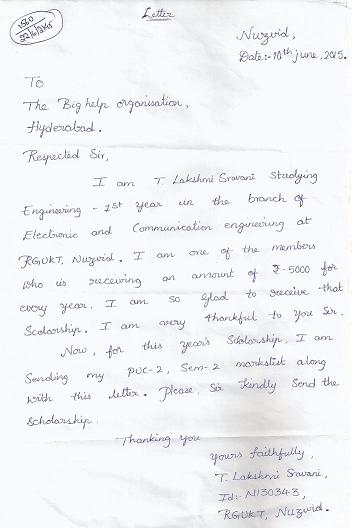 Letter
1580
22/6/2015
Nuzvid,
Date:- 10th june, 2015.
To
The Big help organisation,
Hyderabad.
Respected Sir,
I am T. Lakshmi Sravani Studying
Engineering - 1st year in the branch of
Electronic and Communication engineering at
RGUKT, Nuzvid. I am one of the members
who is receiving an amount of ₹-5000 for
every year. I am so glad to receive that
Scolarship. I am very thankful to you Sir.
Now, for this year's Scholarship, I am
Sending my PUC-2, Sem-2 markslist along
with this letter. Please, Sir kindly Send the
Scholarship.
Thanking you
yours faithfully,
T. Lakshmi Sravani,
Id:- N130343,
RGUKT, Nuzvid.